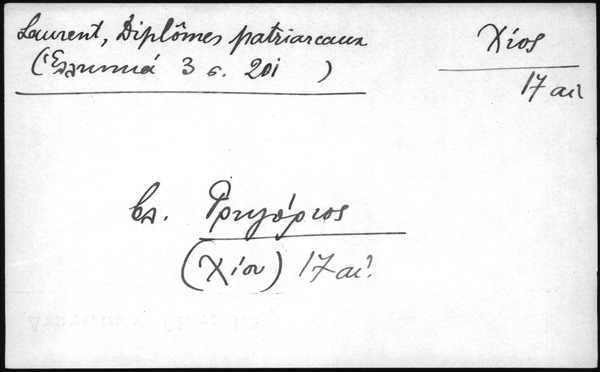 Laurent, Diplômes patriarcaux
(Ἑλληνικά 3 σ. 201 )
Χίος
17 αἰ
βλ. Γρηγόριος
(Χίου) 17 αἰ.